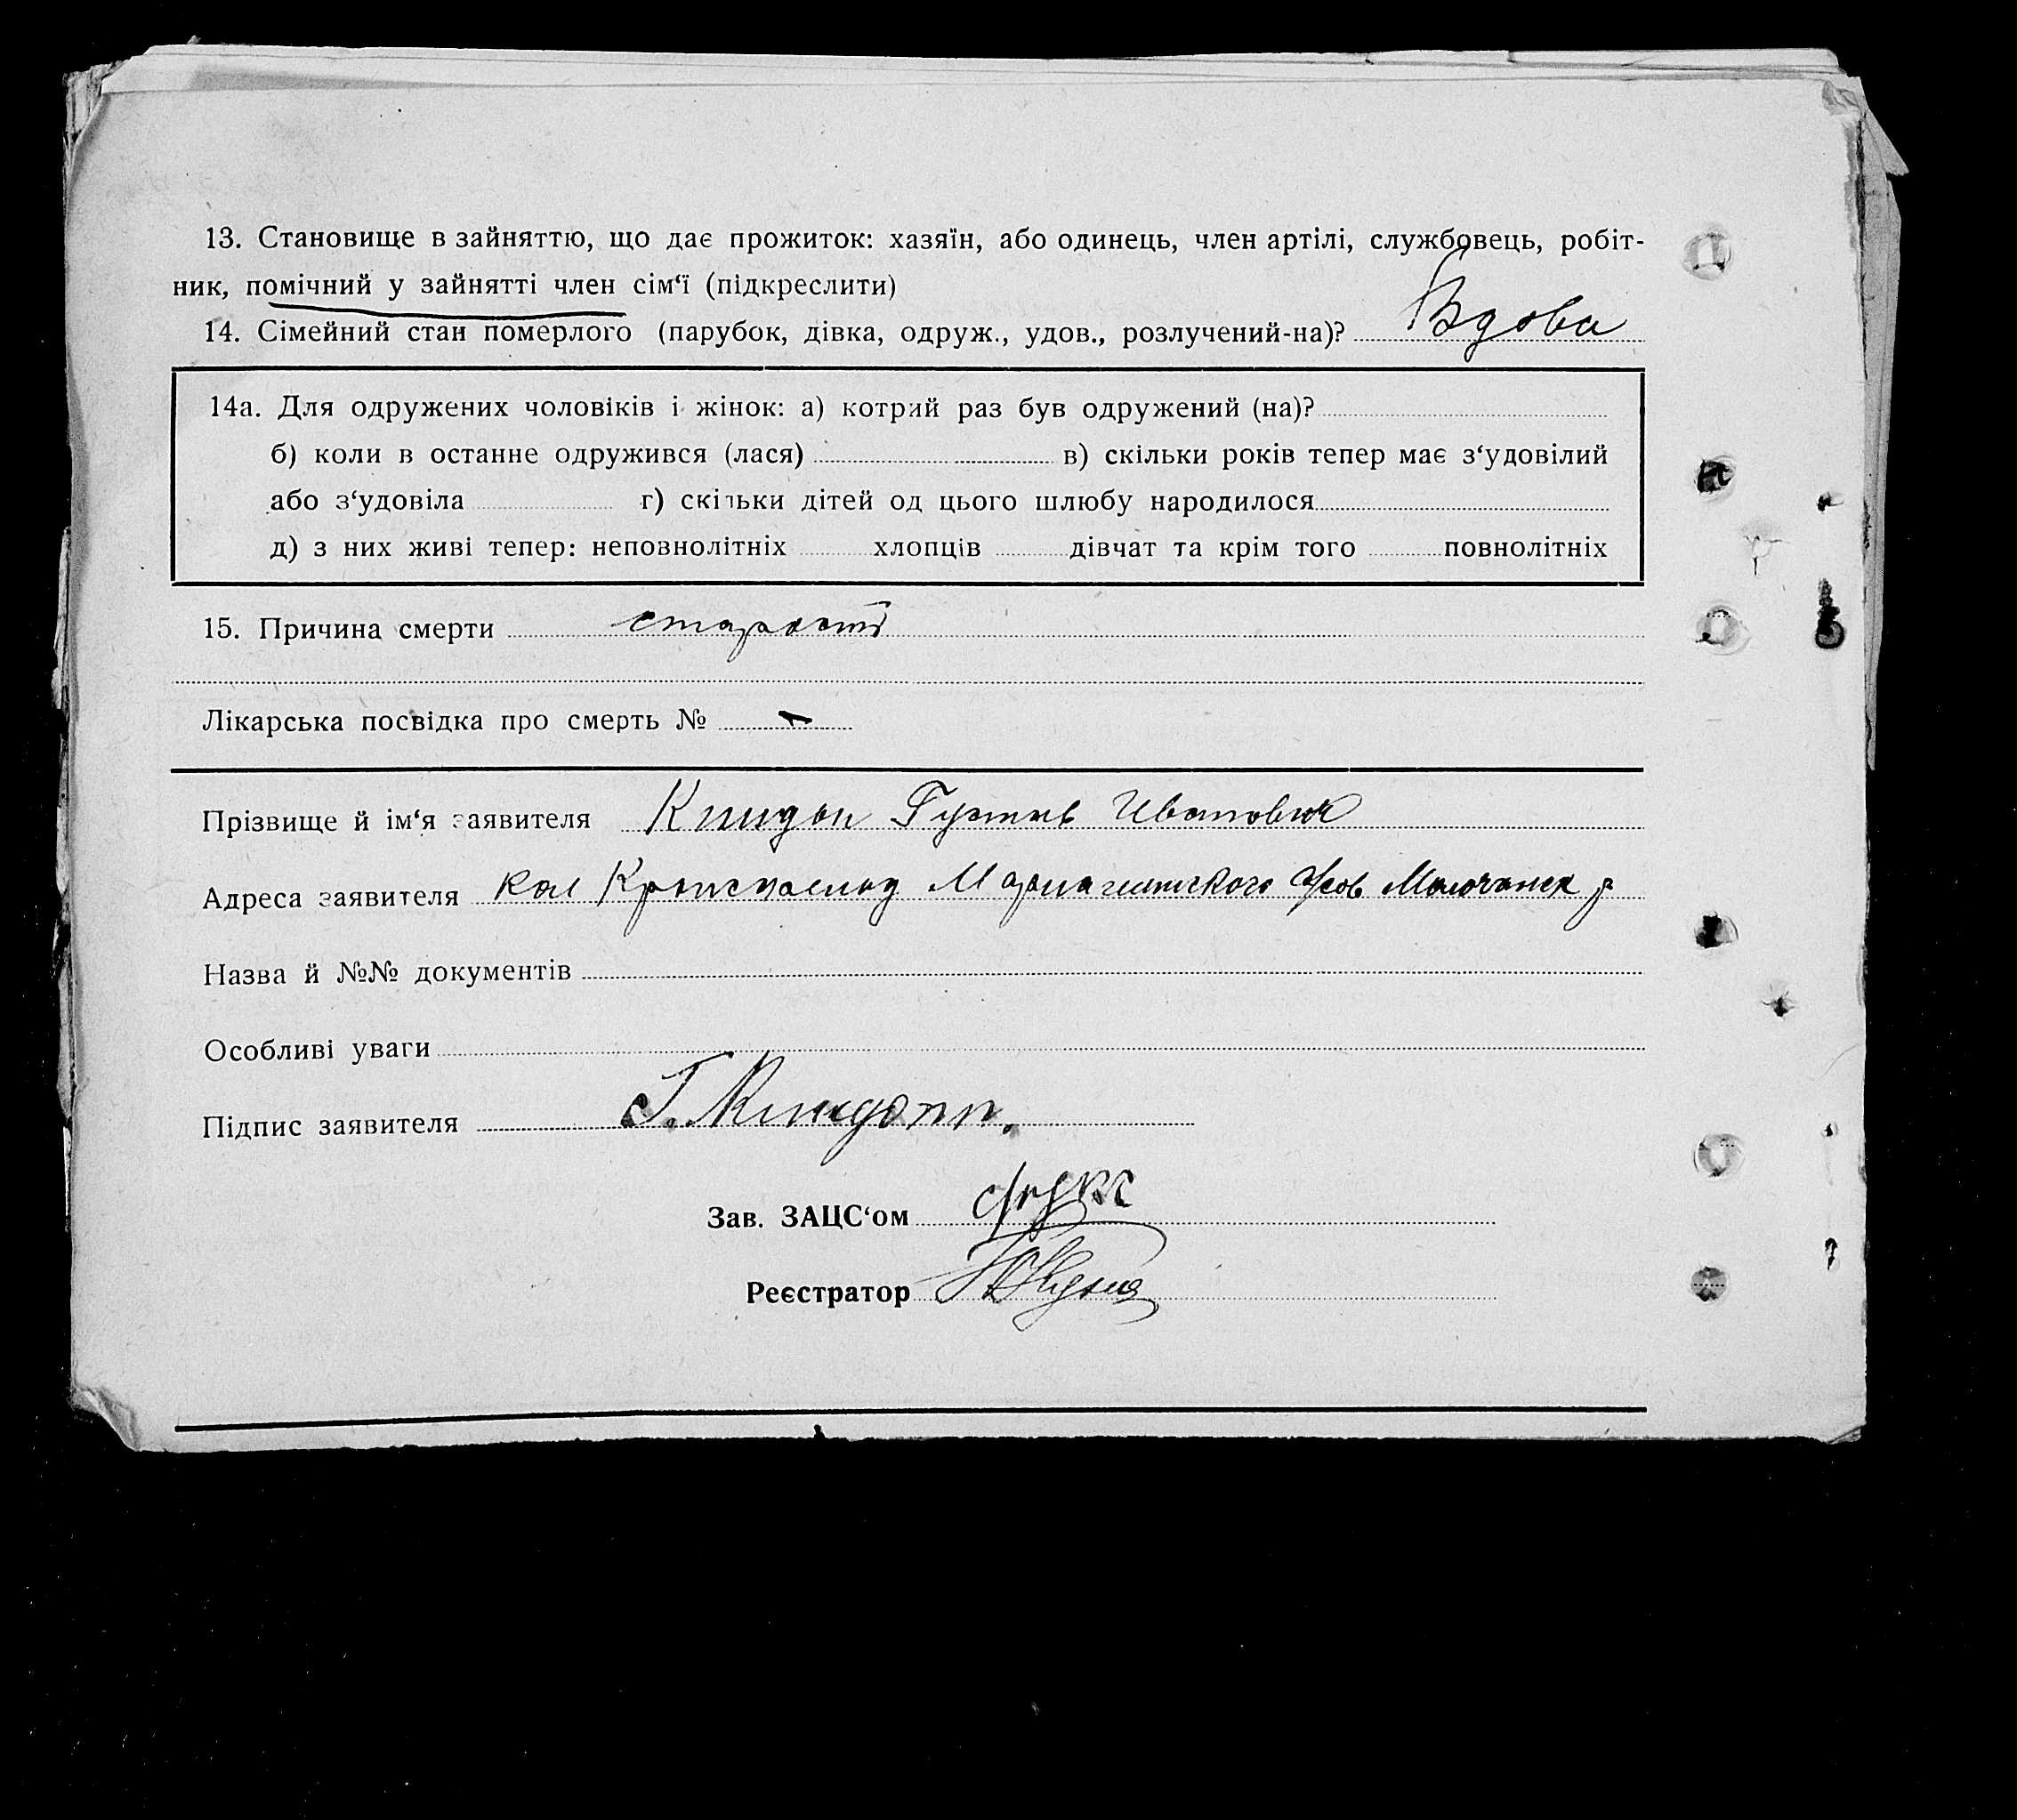 13. Становище в зайняттю, що дає прожиток: хазяїн, або одинець, член артілі, службовець, робіт-
ник, помічний у зайнятті член сім‘ї (підкреслити)
14. Сімейний стан померлого (парубок, дівка, одруж., удов., розлучений-на)? Вдова
14а. Для одружених чоловіків і жінок: а) котрий раз був одружений (на)?
б) коли в останне одружився (лася) в) скільки років тепер має з‘удовілий
або з‘удовіла г) скільки дітей од цього шлюбу народилося
д) з них живі тепер: неповнолітніх хлопців дівчат та крім того повнолітніх
15. Причина смерти старости
Лікарська посвідка про смерть №
Прізвище й ім‘я заявителя Киидоп Густав Ивановик
Адреса заявителя кол Молочанск р
Назва й №№ документів
Особливі уваги
Підпис заявителя Г.
Зав. ЗАЦС‘ом
Реєстратор